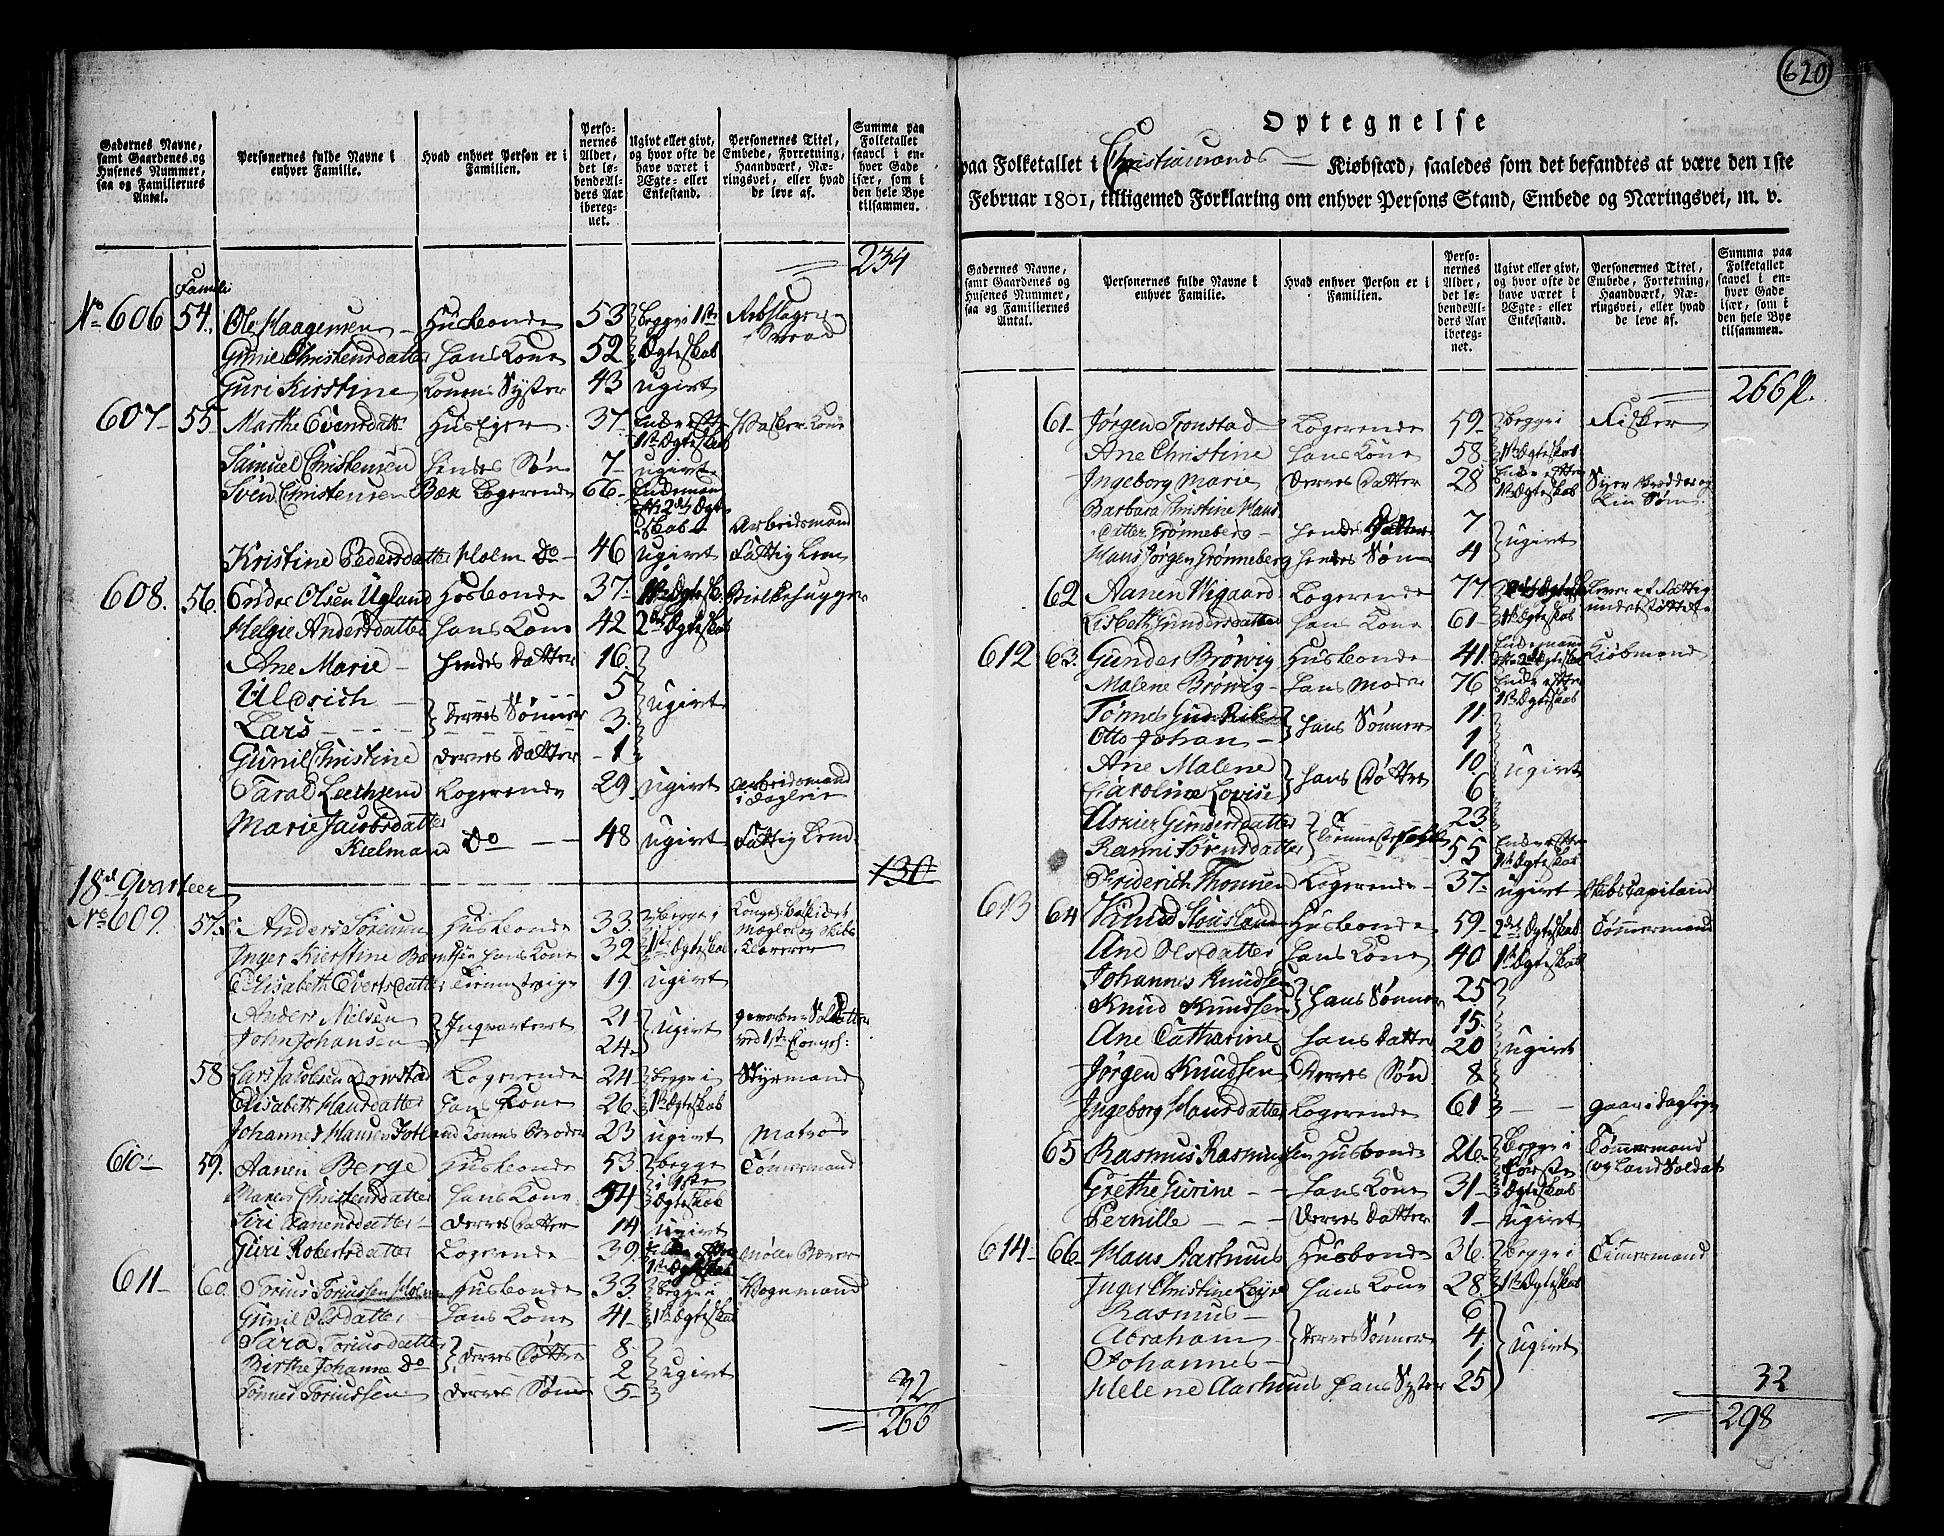 Gadernes Navne, samt Gaardenes og Husenes Nummer, saa og Familiernes Antal.
Personernes fulde Navne i enhver Familie.
Hvad enhver Person er i Familien.
Personernes Alder, det løbende Alders Aar iberegnet.
Ugivt eller givt, og hvor ofte de have været i Ægte- eller Enkestand.
Personernes Titel, Embede, Forretning, Haandværk, Næringsvei, eller hvad de leve af.
Summa paa Folketallet saavel i enhver Gade især, som i den hele Bye tilsammen.
234
Famili
No 606 54. Ole Haagensen Husbonde 53 begge i 1ste
Gunie Christensdatter hans Kone 52 Ægteskab
Guri Kirstine Konens Syster 43 ugivt
607 55 Marthe Evensdatt Hus Eyer 37 Enke efter 1ste Ægteskab Vasker Kone
Samuel Christensen hendes Søn 7 ugivt
Svend Christensen Bæk Logerende 66 Arbeidsmand
Kristine Pedersdatter Holm Do 46 ugivt Fattig Lem
608. 56. Endre Olsen Ugland Hosbonde 37 1ste Ægteskab Bielkehugger
Helgie Andersdatter hans Kone 42 2det Ægteskab
Ane Marie hendes Datter 16.
Uldrich 5
Lars deres Sønner 3 ugivt
Gunil Christine deres Datter 1
Tarald Leethsend Logerende 29 ugivt Arbeidsmand
Marie Jacobsdatter
Kielmand Do 48 ugivt Fattig Lem
130
18d Qvarteer
No 609. 57. Anders Sørensen Husbonde 33 begge i
Inger Kierstine Berntsen hans Kone 32 1ste Ægteskab
Elisabeth Evertsdatter Tienniste pige 19 ugivt
Anders Nielsen 21
John Johansen Inqvarteert 24 ugivt
58 Lars Jacobsen Lowstad Logerende 24 begge i Styrmand
Elisabeth Hansdatter hans Kone 26 1ste Ægteskab
Johannes Hansen Konens Broder 23 ugivt Matros
610 59. Aanen Berge Husbonde 53 begge Tømermand
Maren Christensdatter hans Kone 54 i 1ste Ægteskab
Siri Aanensdatter deres Datter 14 ugivt
Guri Robertsdatter Logerende 39
611 60. Torius Toriussen Holm Husbonde 33 begge i Vognmand
Gunil Olsdatter hans Kone 41 1ste Ægteskab
Sara Toriusdatter 8
Birthe Johanne Do deres Døttre 2 ugivt
Tønnes Toriussen deres Søn 5
32
266
620
Optegnelse
paa Folketallet i Christiansands Kiøbstæd, saaledes som det befandtes at være den 1ste
Februar 1801, tilligemed Forklaring om enhver Persons Stand, Embede og Næringsvei, m. v.
Gadernes Navne, samt Gaardenes og Husenes Nummer, saa og Familiernes Antal.
Personernes fulde Navne i enhver Familie.
Hvad enhver Person er i Familien.
Personernes Alder, det løbende Alders Aar iberegnet.
Ugivt eller givt, og hvor ofte de have været i Ægte- eller Enkestand.
Personernes Titel, Embede, Forretning, Haandværk, Næringsvei, eller hvad de leve af.
Summa paa Folketallet saavel i enhver Gade især, som i den hele Bye tilsammen.
266
61 Jørgen Tronstad Logerende 59 begge i Fisker
Ane Christine hans Kone 58 1ste Ægteskab
Ingeborg Marie deres Datter 28 Enke efter 1ste Ægteskab
Barbara Christine Hans
Datter Grønneberg hendes Datter 7
Hans Jørgen Grønneberg hendes Søn 4 ugivt
62 Aanen Wigaard Logerende 77
Lisbeth Gundersdatter hans Kone 61 1ste Ægteskab
612 63. Gunder Brøvig Husbonde 41 Kiøbmand
Malene Brøvig hans Moder 76 Enke efter 1ste Ægteskab
Tønnes 11
Otto Johan hans Sønner 1
Ane Malene 10 ugivt
Caroline Lovise hans Døttre 6
Askier Gundersdatter 23
Ranni Sørensdatter 55 Enke efter 1ste Ægteskab
Friderich Thomsen Logerende 37 ugivt Skibscapitain
613 64 Knud Husbonde 59 2det Ægteskab Tømmermand
Ane Olsdatter hans Kone 40 1ste Ægteskab
Johannes Knudsen 25
Knud Knudsen hans Sønner 15
Ane Catharine hans Datter 20 ugivt
Jørgen Knudsen deres Søn 8
Ingeborg Hansdatter Logerende 61
65 Rasmus Rasmussen Husbonde 26 begge i Tømmermand
og Land Soldat
Grethe Gurine hans Kone 31 første Ægteskab
Pernille deres Datter 1 ugivt
614 66 Hans Aarhuus Husbonde 36 begge i Tømermand
Inger Christine hans Kone 28 1ste Ægteskab
Rasmus 6
Abraham deres Sønner 4 ugivt
Johannes 1
Helene Aarhuus hans Syster 25
32
298